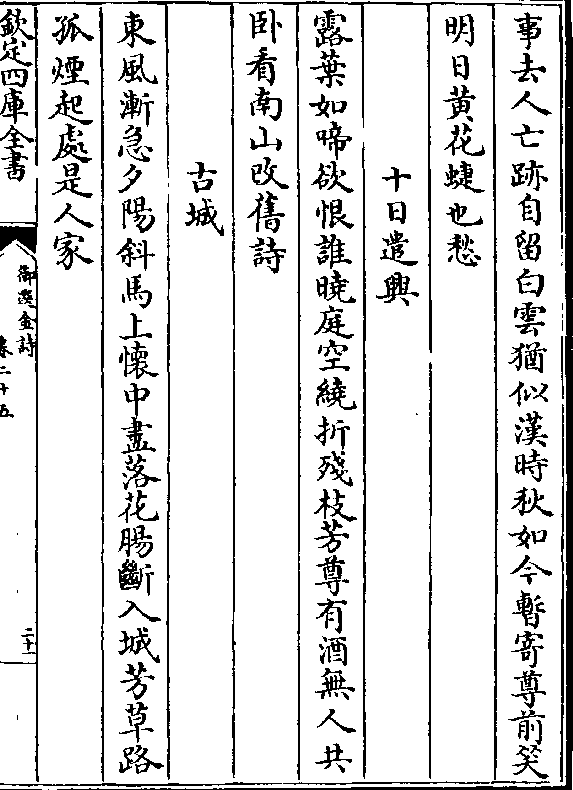 事去人亡跡自留白雲猶似漢時秋如今暫寄尊前笑
明日黃花蜨也愁
十日遣興
露葉如啼欲恨誰曉庭空繞折殘枝芳尊有酒無人共
卧看南山改舊詩
古城
東風漸急夕陽斜馬上懷中盡落花腸斷入城芳草路
孤煙起處是人家
欽定四庫全書
御選金詩
卷二十五
二十一